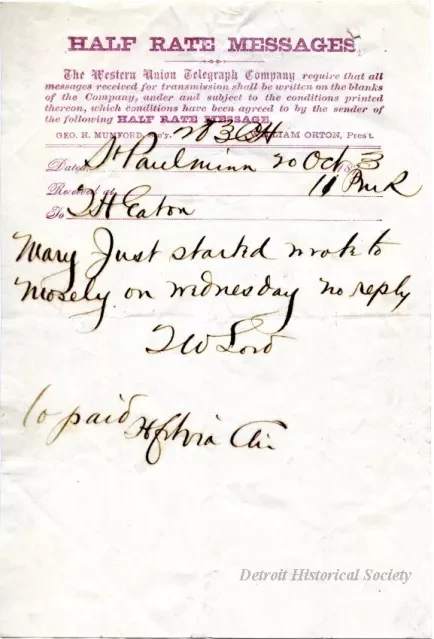 HALF RATE MESSAGES.
The Western Union Telegraph Company require that all
messages received for transmission shall be written on the blanks
of the Company, under and subject to the conditions printed
thereon, which conditions have been agreed to by the sender of
the following HALF RATE MESSAGE.
GEO. H. MUMFORD, Sec'y. WILLIAM ORTON, Pres't.
Dated, St Paul minn 20 Oct 1873
Received at 11 Pm R
To T H Eaton
Mary Just started wrote to
Mosely on wednesday no reply
T W Lord
10 paid via Chi
Detroit Historical Society